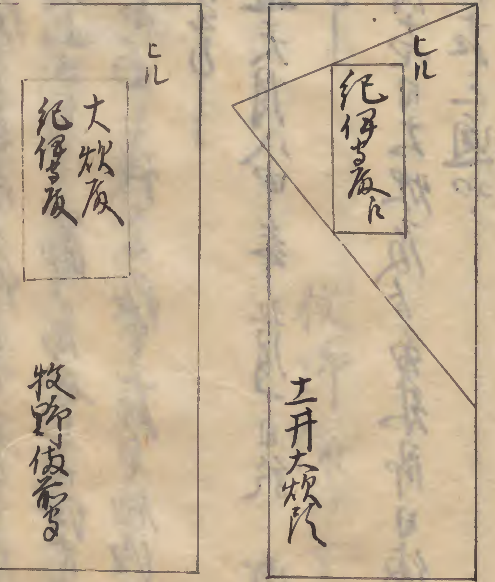 ヒル
紀伊守殿に
土井大炊頭
ヒル
大炊殿
紀伊守殿
牧野備前守